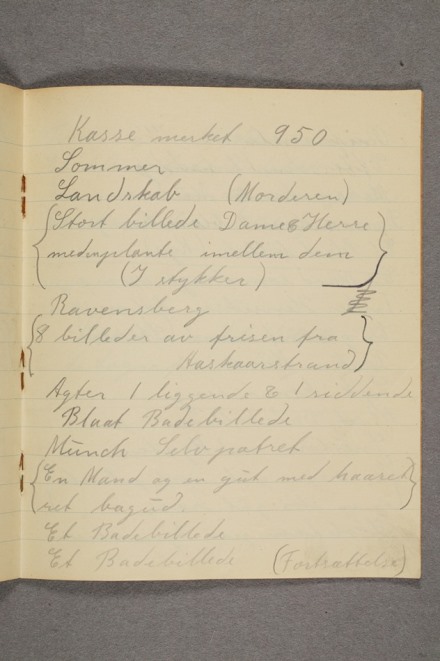 Kasse merket 950
Sommer
Landskab (Morderen)
{Stort billede Dame & Herre}
{medn plante imellem dem
(7 stykker)}
Ravensberg
{8 billeder av frisen fra
Aaskaarstrand}
Agter 1 liggende & 1 siddende
Blaat Badebillede
Münch Selvpatret
{En Mand og en gut med haaret
ret bagud.}
Et Badebillede
Et Badebillede (Fortsættelse)